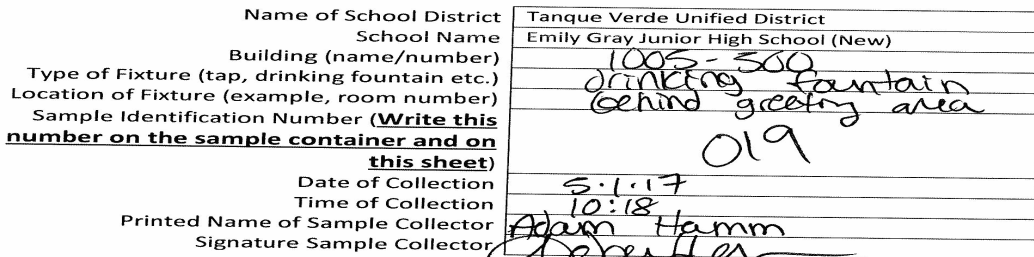 Name of School District Tanque Verde Unified District
School Name Emily Gray Junior High School (New)
Building (name/number) 1005-500
Type of Fixture (tap, drinking fountain etc.) drinking fountain
Location of Fixture (example, room number) behind greeting area
Sample Identification Number (Write this
number on the sample container and on 019
this sheet)
Date of Collection 5.1.17
Time of Collection 10:18
Printed Name of Sample Collector Adam Hamm
Signature Sample Collector